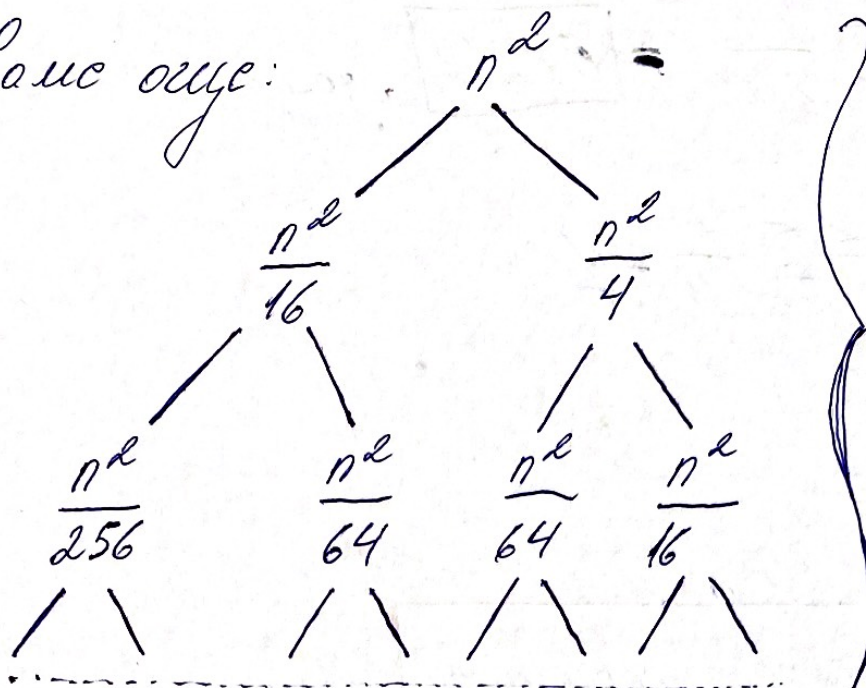 още:
n²
n²/16 n²/4
n²/256 n²/64 n²/64 n²/16